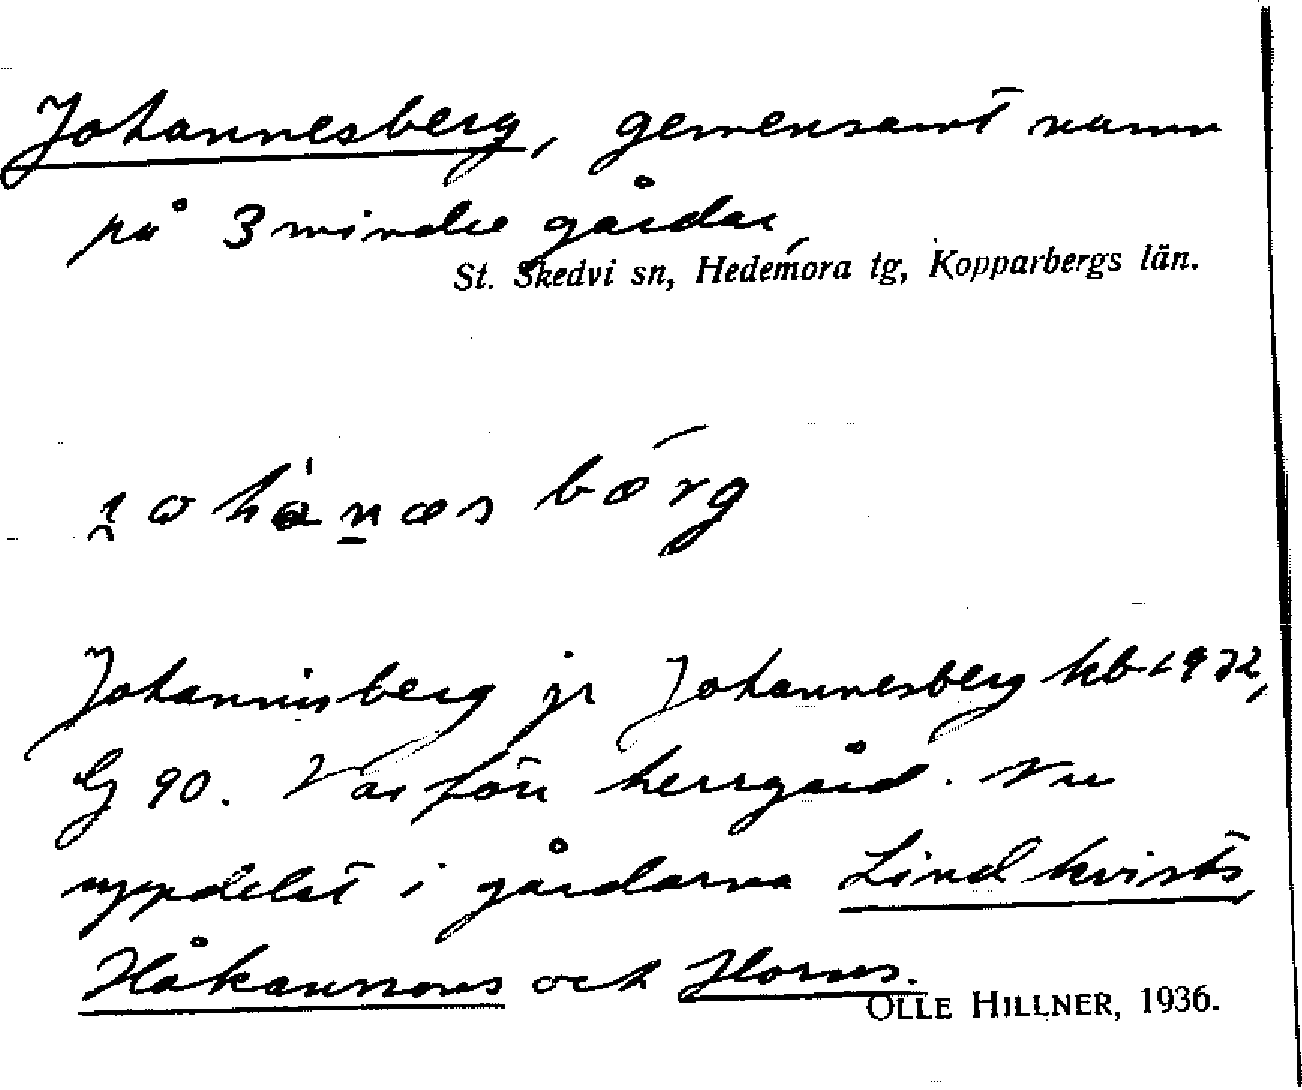 Johannesberg, gemensamt namn
på 3 mindre gårdar,
St. Skedvi sn, Hedemora tg, Kopparbergs län.
Johannisberg jr Johannesberg kb 1932,
G 90. Var förr herrgård. Nu
uppdelat i gårdarna Lindkvists,
Håkansons och Horns.
OLLE HILLNER, 1936.